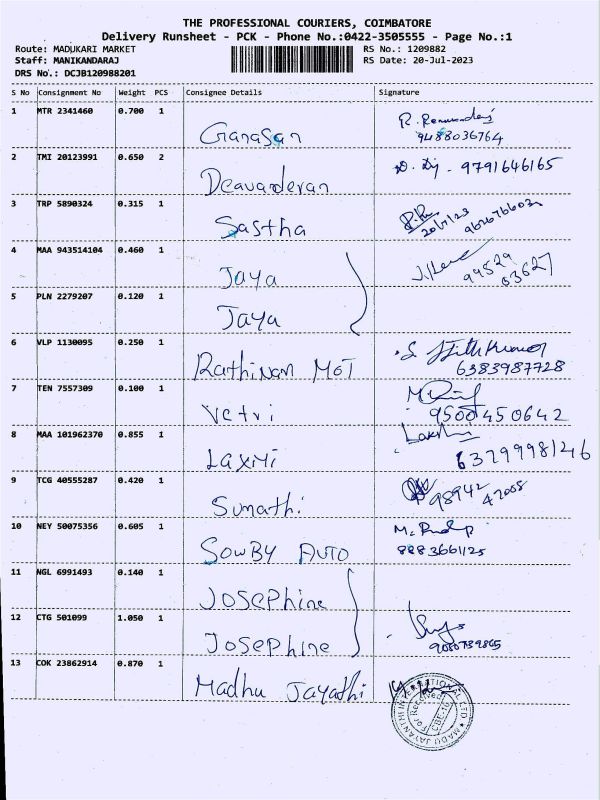 THE PROFESSIONAL COURIERS, COIMBATORE
Delivery Runsheet - PCK - Phone No.:0422-3505555 - Page No.:1
Route: MADUKARI MARKET RS No.: 1209882
Staff: MANIKANDARAJ RS Date: 20-Jul-2023
DRS No.: DCJB120988201
S No Consignment No Weight PCS Consignee Details Signature
1 MTR 2341460 0.700 1 Ganasan
9488036764
2 TMI 20123991 0.650 2 Deavanderan 9791646165
3 TRP 5890324 0.315 1 Sastha 20/7/23
4 MAA 943514104 0.460 1 Jaya 99529 63627
5 PLN 2279207 0.120 1 Jaya
6 VLP 1130095 0.250 1 Rathinam MOT
6383987728
7 TEN 7557309 0.100 1 Vetri 9500450642
8 MAA 101962370 0.855 1 Laxmi Lakshmi
6379998146
9 TCG 40555287 0.420 1 Sumathi 98942 47008
10 NEY 50075356 0.605 1 SOWBY AUTO
8883661125
11 NGL 6991493 0.140 1 Josephine
12 CTG 501099 1.050 1 Josephine
13 COK 23862914 0.870 1 Madhu Jayathi
MADU JAYANTHI INTERNATIONAL LTD
For Received